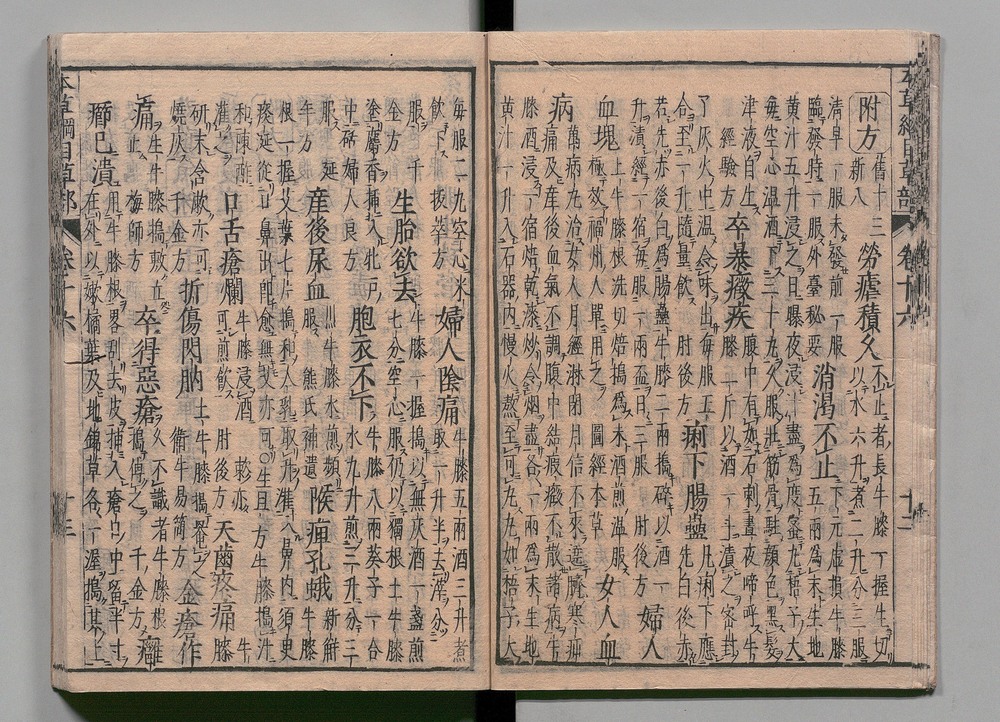 附方 舊十三新八 勞瘧積久 不止者長牛膝一握生切以水六升煮二升分三服
清旦一服未發前一服臨發時一服外臺秘要 消渴不止 下元虛損牛膝五兩為末生地
黃汁五升浸之日曝夜浸汁盡為度蜜丸梧子大每空心溫酒下三十丸久服壯筋骨駐顏色黑髮
津液自生經驗方 卒暴癥疾 腹中有如石刺晝夜啼呼牛膝二斤以酒一斗漬之密封
了灰火中溫令味出每服五合至一升隨量飲肘後方 痢下腸蠱 凡痢下應先白後赤
若先赤後白為腸蠱牛膝二兩搗碎以酒一升漬經一宿每服一兩盃日二三服肘後方 婦人
血塊 土牛膝根洗切焙搗為末酒煎溫服極效福州人單用之圖經本草 女人血
病 萬病丸治女人月經淋閉月信不來遶臍寒疝痛及產後血氣不調腹中結瘕癥不散諸病牛
膝酒浸一宿焙乾漆炒令烟盡各一兩為末生地黃汁一升入石器內慢火熬至可丸丸如梧子大
每服二丸空心米飲下拔萃方 婦人陰痛 牛膝五兩酒三升煮取一升半去滓分三
服千金方 生胎欲去 牛膝一握搗以無灰酒一盞煎七分空心服仍以獨根土牛膝
塗麝香插入牝戶中婦人良方 胞衣不下 牛膝八兩葵子一合水九升煎三升分三
服延年方 産後尿血 川牛膝水煎頻服熊氏補遺 喉痺乳蛾 新鮮牛膝
根一握艾葉七片搗和人乳取汁灌入鼻內須臾痰涎從口鼻出即愈無艾亦可○一方生牛膝搗汁
和陳酢灌之 口舌瘡爛 牛膝浸酒含漱亦可煎飲肘後方 牙齒疼痛 牛膝
研末含漱亦可燒灰千金方 折傷閃肭 土牛膝搗罨之衛生易簡方 金瘡作
痛 生牛膝搗敷立止梅師方 卒得惡瘡 人不識者牛膝根搗傅之千金方 癰
癤已潰 用牛膝根畧刮去皮插入瘡口中留半寸在外以嫩橘葉及地錦草各一握搗其上